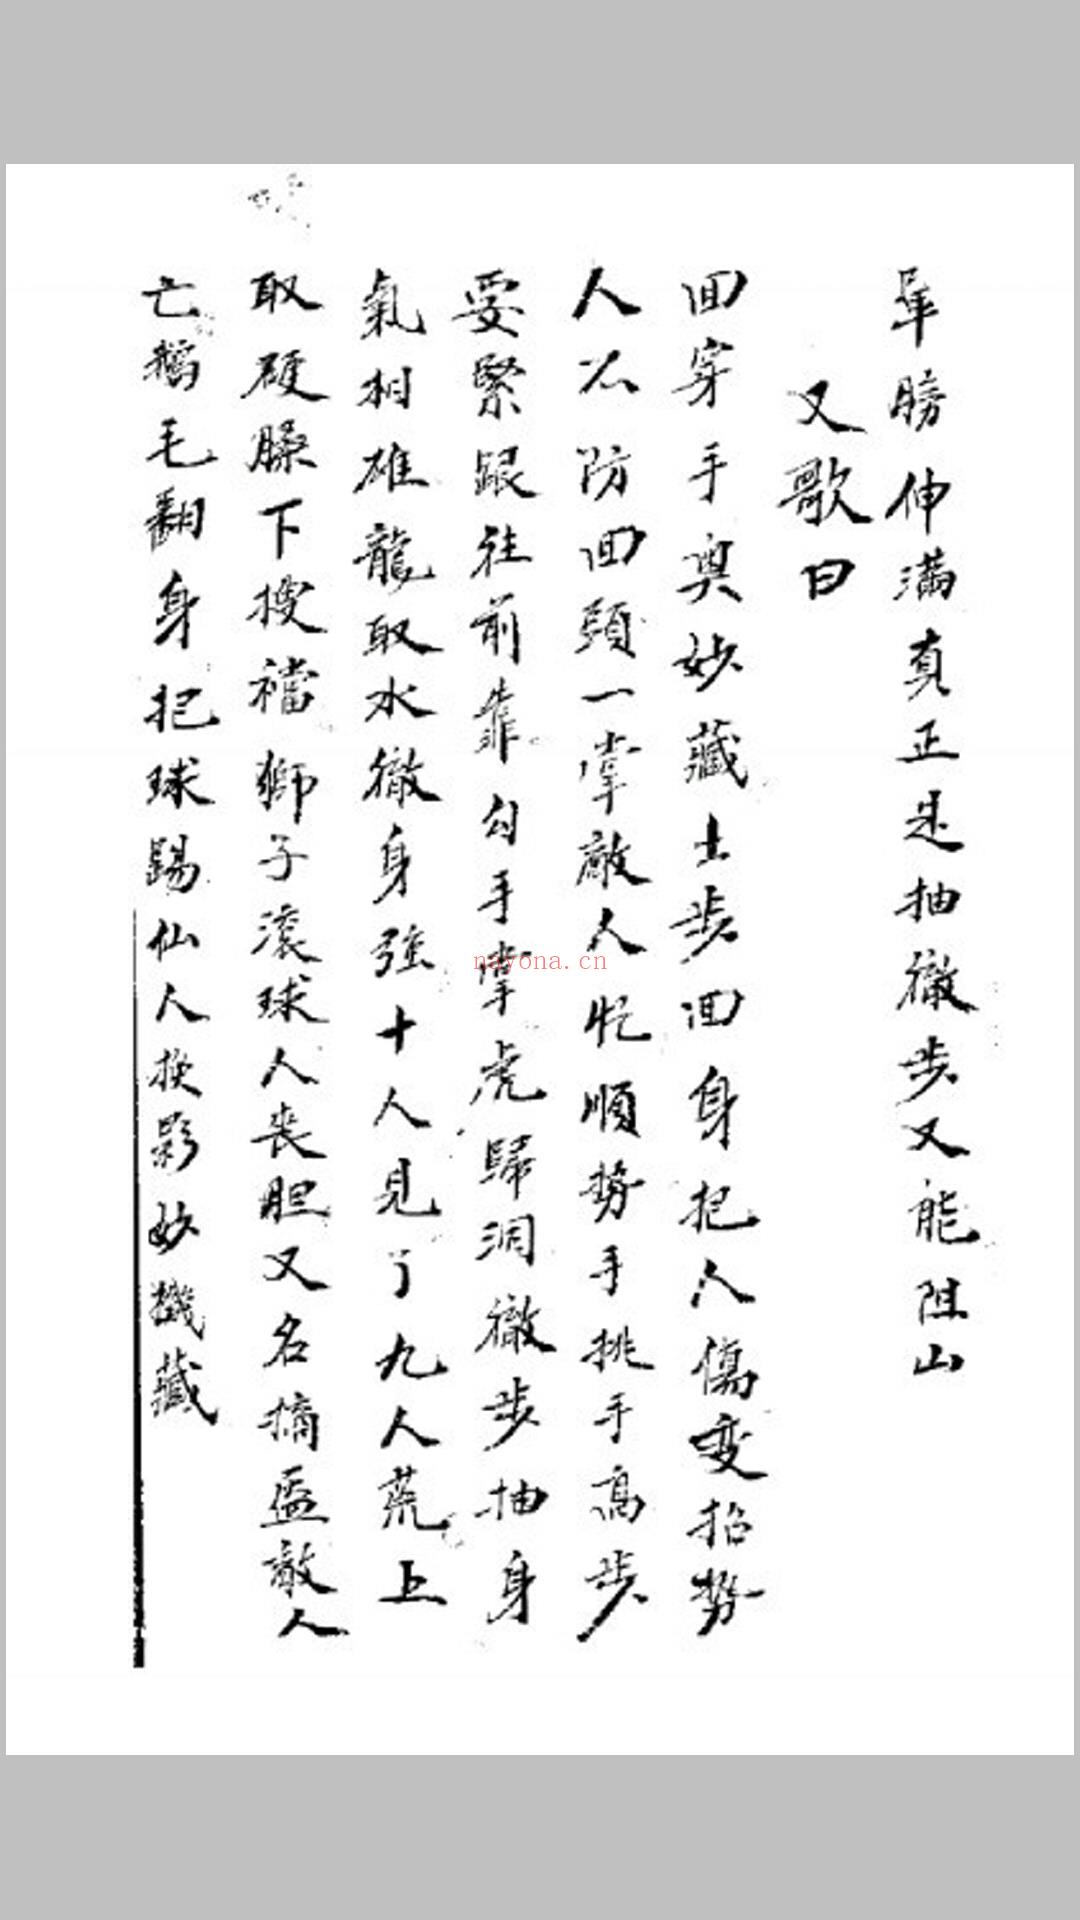 犀膀伸滿真正是抽徹步又能阻山
又歌曰
回穿手奥妙藏土步回身把人傷变招势
人不防回頭一掌敵人忙順势手挑手高步
要緊跟往前靠勾手掌虎歸洞徹步抽身
氣相雄龍取水徹身強十人見了九人荒上
取硬臊下搜襠獅子滾球人丧胆又名摘盔敵人
亡鵝毛翻身把球踢仙人换影妙機藏
nayona.cn